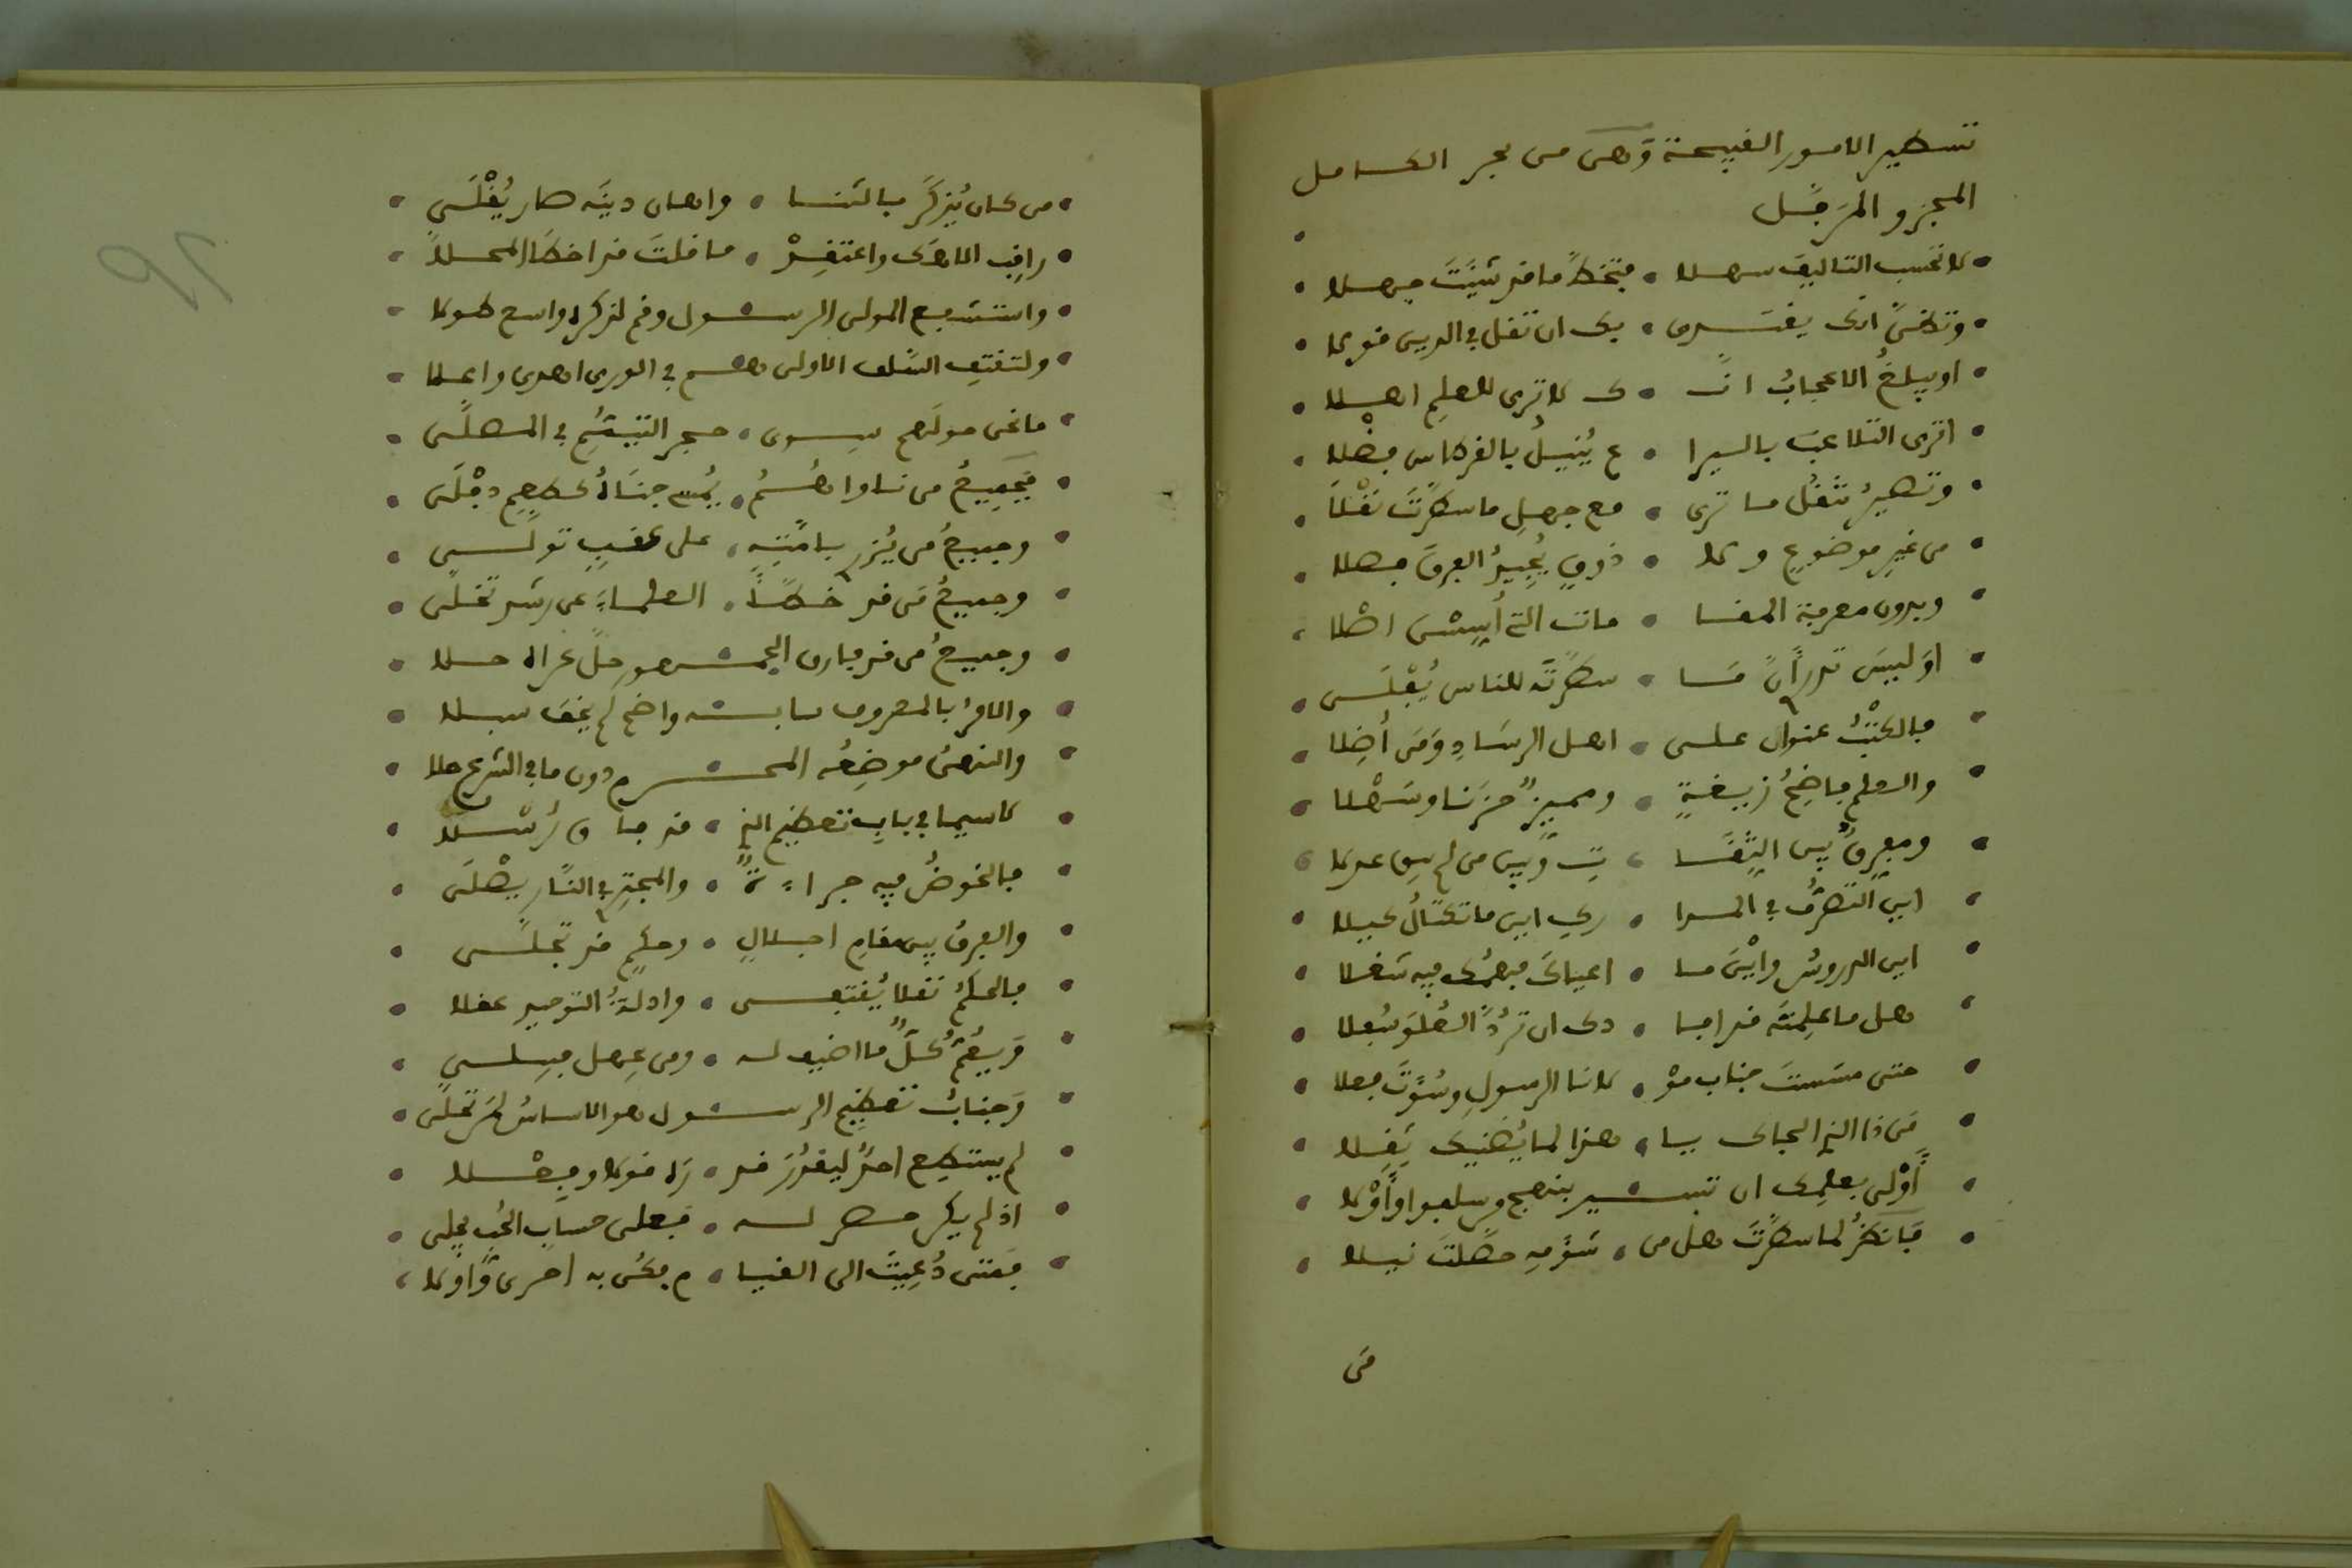 تسطير الامور القبيحة وَهىَ من بحر الكامل
المجزو المرَفّل
لا تحسب التاليف سهلا • فتخطَّ ما قد شئتَ جهلا
وتظنّ انك يقتدى • بك ان تقل في الدين قولا
او يبلغُ الاعجابُ انـ • ـك لا ترى للعلمِ اهلا
اترى التلاعبَ باليرا • ع يُنيلُ بالقرطاس فضْلا
وتصيرُ تنقُل ما ترى • مع جهلِ ما سطّرْتَ نقْلا
من غيرِ موضوعٍ ولا • ذوقٍ يُجيدُ الفرقَ فصلا
وبدون معرفة المقا • مات التي أُسِّسْنَ اصْلا
اوَليسَ تدر أنّ مَا • سطرتَه للناس يُتْلَى
فالكتْبُ عنوان على • اهل الرشادِ وَمَن أضلا
والعلم فاضِحُ زيغةٍ • ومميزٌ حزَنا وسَهْلا
ومفرقٌ بين الثِّقَا • تِ وَبين من لم يك عدلا
اين التصرُّف في المدا • رك اين ما تكتالُ كيلا
اين الدروسُ وايْنَ ما • اعياكَ فهمُك فيه شغلا
هل ما علِمتَه قد افا • دك ان تردَّ العُلوَ سُفلا
حتى مسَستَ جناب مَوْ • لانا الرسولِ وسُؤتَ فعلا
مَن ذا الذي الجاك يا • هذا لما يُضنيك ثِقلا
أَوْلى بعلمِك ان تسير بنهج من سلفوا وَأَوْلا
فانظرْ لما سطّرْتَ هل من • شؤمِهِ حصّلتَ نيلا
من
من كان يُذكَرُ بالثنا • واهان دينَه صار يُقْلَى
راقِب الاهَك واعتقِدْ • ما قلتَ قد اخطا المحلا
واستشفع المولى الرسول وقم لذكره واسع طولا
ولتقتفِ السّلف الاولى هم في الورى اهدى واعلا
ما نحن مولَاهم سوى • حجر التيمُّمِ في المصلَّى
فجميعُ من ناواهُمُ • يُمسي جنَاهُ كطعمِ دِفْلَى
وجميعُ من يُزرِ بامّتِهِ • على عقبٍ تولَّى
وجميعُ مَن قد خطّأ • العلماءَ عن رشد تخلّى
وجميعُ من قد فارق الجمهور حلّ عراه حلا
والامرُ بالمعروف بابه واضح لم يخفَ سبلا
والنهىُ موضِعُه المحرم دون ما في الشرع حلا
لا سيما في بابِ تعظيم الذي • قد فاق رُسْلا
فالخوضُ فيه جراءةٌ • والمجترِ في النّار يصْلَى
والفرقُ بين مقامِ اجلالٍ • وحكمٍ قد تجلّى
فالحكمُ نقلا يُقتفى • وادلةُ التوحيد عقلا
وَيعُمُّ كلُّ ما اضيف له • ومن جهل فيسلى
وَجنابُ تعظيم الرسول هو الاساسُ لمن تحلّى
لم يستطع احدٌ ليقدُرَ قد • رَه قولا وفعلا
اذ لم يكن حصر له • فعلى حسابِ الحُبِ يجلى
فمتى دُعيتَ الى القيا • م فكن به احرى وَاولا